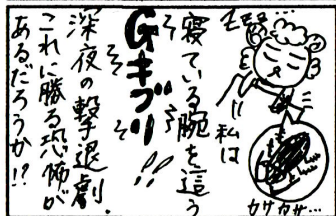 ZZZ…
私は
寝ている腕を這う
Gキブリ!!
深夜の撃退劇。
これに勝る恐怖が
あるだろうか!?
カサカサ…